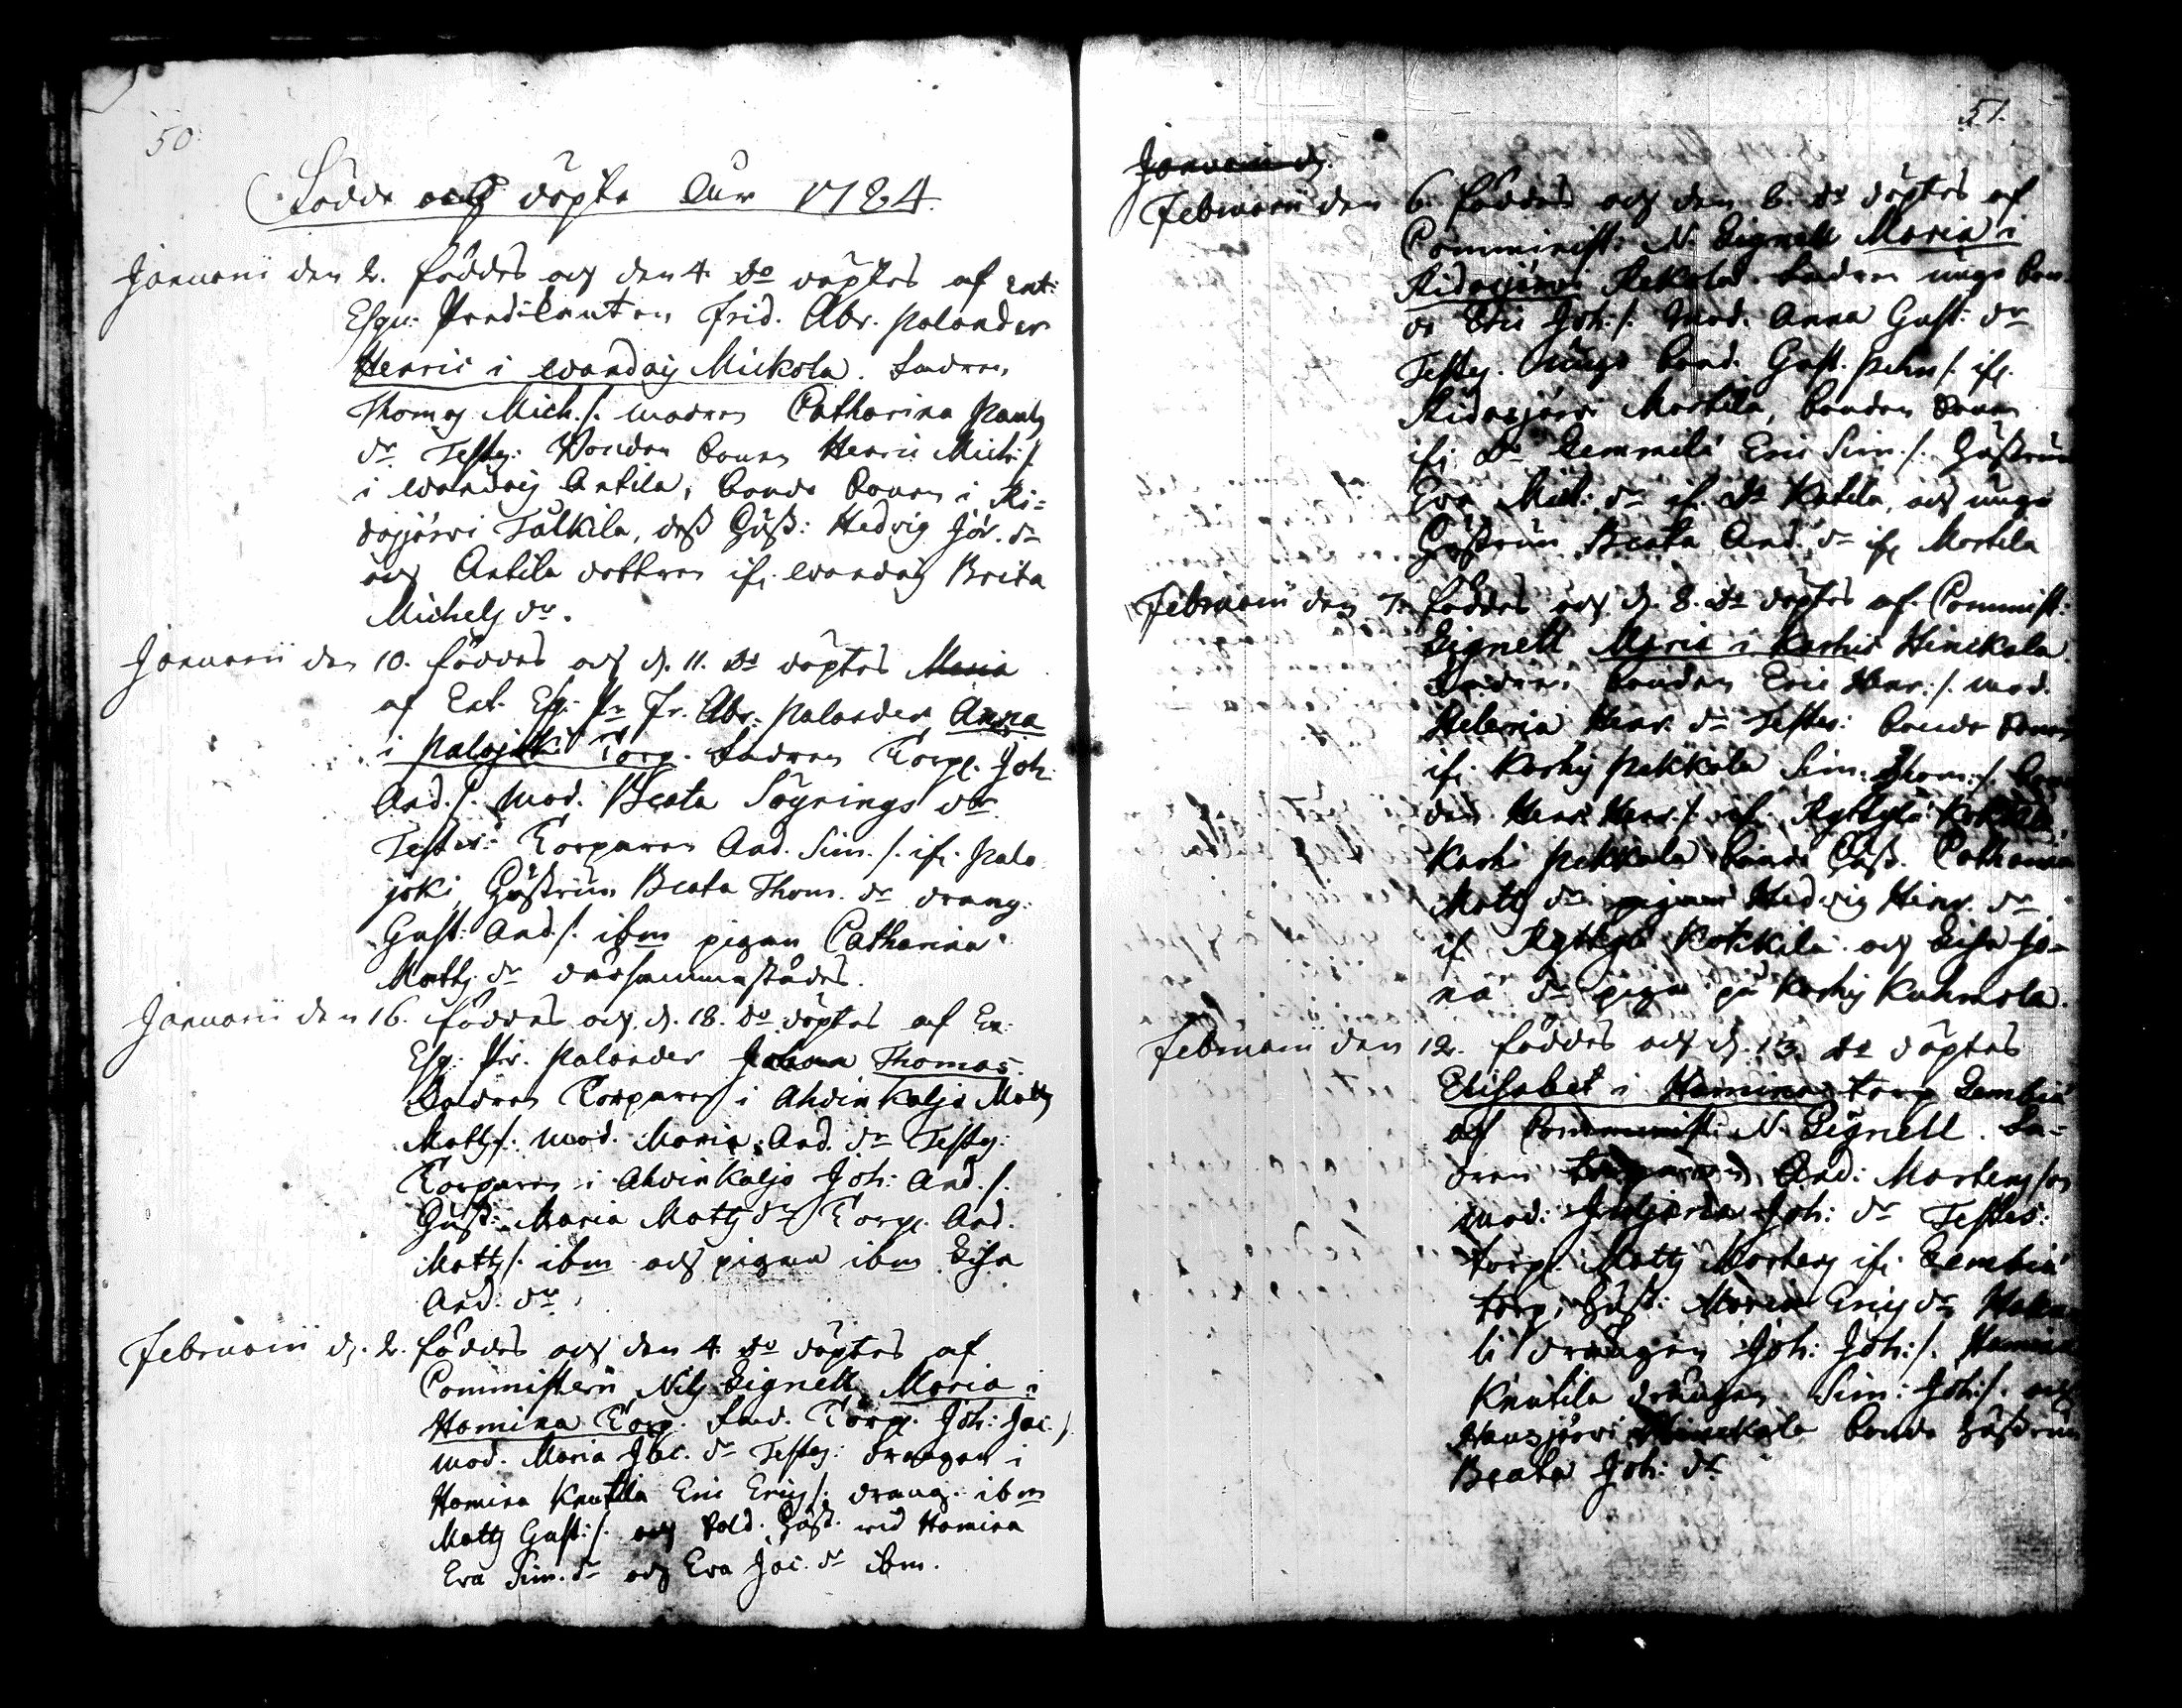 50.
Födde och döpte Åur 1784.
Januarii den 2. föddes och den 4. do döptes af ext:
Esqu: Predikanten Frid. Abr. Palander
Henric i Wandais Mickola. Fadren
Thomas Mich. s. modren Catharina Pauls
dr. Testes: Bonden Henric Mich: s.
i Wandais Antila, bonde i Ki-
dasjärvi Tålkila, dess Hust: Hedvig Jör. dr
och Antila dottren ifr. Wandais Brita
Michels dr.
Januarii den 10. föddes och d. 11. do döptes Maria
af Ext. Esq. Pr. Fr. Abr. Palander Anna
i Palojoki Torp. Fadren Torp. Joh.
And. s. mod. Beata Signings dr
Testes: Torparen And. Sim. s. ifr. Palo
joki, Hustrun Beata Thom. dr dräng.
Gust: And. s. ibm pigan Catharina
Matts dr dersammastädes.
Januarii den 16. föddes och d. 18. do döptes af Ex.
Esq: Pr. Palander Johan Thomas.
Fadren Torparen i Ahvinkaljo Matts
Matts s. mod. Maria And. dr Testes:
Torparen i Ahvinkaljo Joh: And. s.
Hust: Maria Matts dr Torp. And.
Matts s. ibm och pigan ibm Lisa
And. dr.
Februarii d. 2. föddes och den 4. do döptes af
Comministern Nils Lignell Maria i
Hamina Torp. Fad. Torp. Joh: Jac. s.
mod. Maria Jac. dr Testes: drängen i
Hamina Knutila Eric Erics s. dräng. ibm
Matts Gust: s. och Sold. Hust. vid Hamina
Eva Sim. dr och Eva Jac. dr ibm.
51.
Januarii d.
Februarii den 6. föddes och den 8. do döptes af
Comminist: N. Lignell Maria i
Kidasjärvi Rekola. Fadren unge bon-
de Eric Joh: s. Mod. Anna Gust: dr
Testes. Unge bond. Gust. s. ifr.
Kidasjärvi Martila, bonden
ifr. do Lemmilä Eric Sim. s. Hustrun
Eva Mich: dr ifr. do Katila, och unge
Hustrun Beata And. dr ifr Martila
Februarii den 7. föddes och d. 8. do döptes af Commist:
Lignell Maria i Karhis Hinckala.
Fadren bonden Eric Henr: s. mod.
Helena Henr. dr Testes: bonde
ifr. Karhis Pekkola Sim. Thom: s. bon
den Henr. Henr. s. ifr. Ryttylä Kokkila,
Karhi Pekkola bonde Hust. Catharina
Matts dr pigan Hedvig Henr. dr
if. Ryttylä Kokkila och Lisa Jo-
na dr piga på Karhis Kuhmola.
Februarii den 12. föddes och d. 13. do döptes
Elisabet i Hamina torp Lembiä
af Comminist: N. Lignell. Fa-
dren Torparen And: Mortensson
mod: Joh: dr Testes:
torp. Matts Mortens ifr Lembiä
torp, Hust: Maria Erics dr
li drängen Joh: Joh: s. Hamina
Knutila drängen Sim: Joh: s. och
Hausjärvi Hinckala bonde Hustrun
Beata Joh: dr